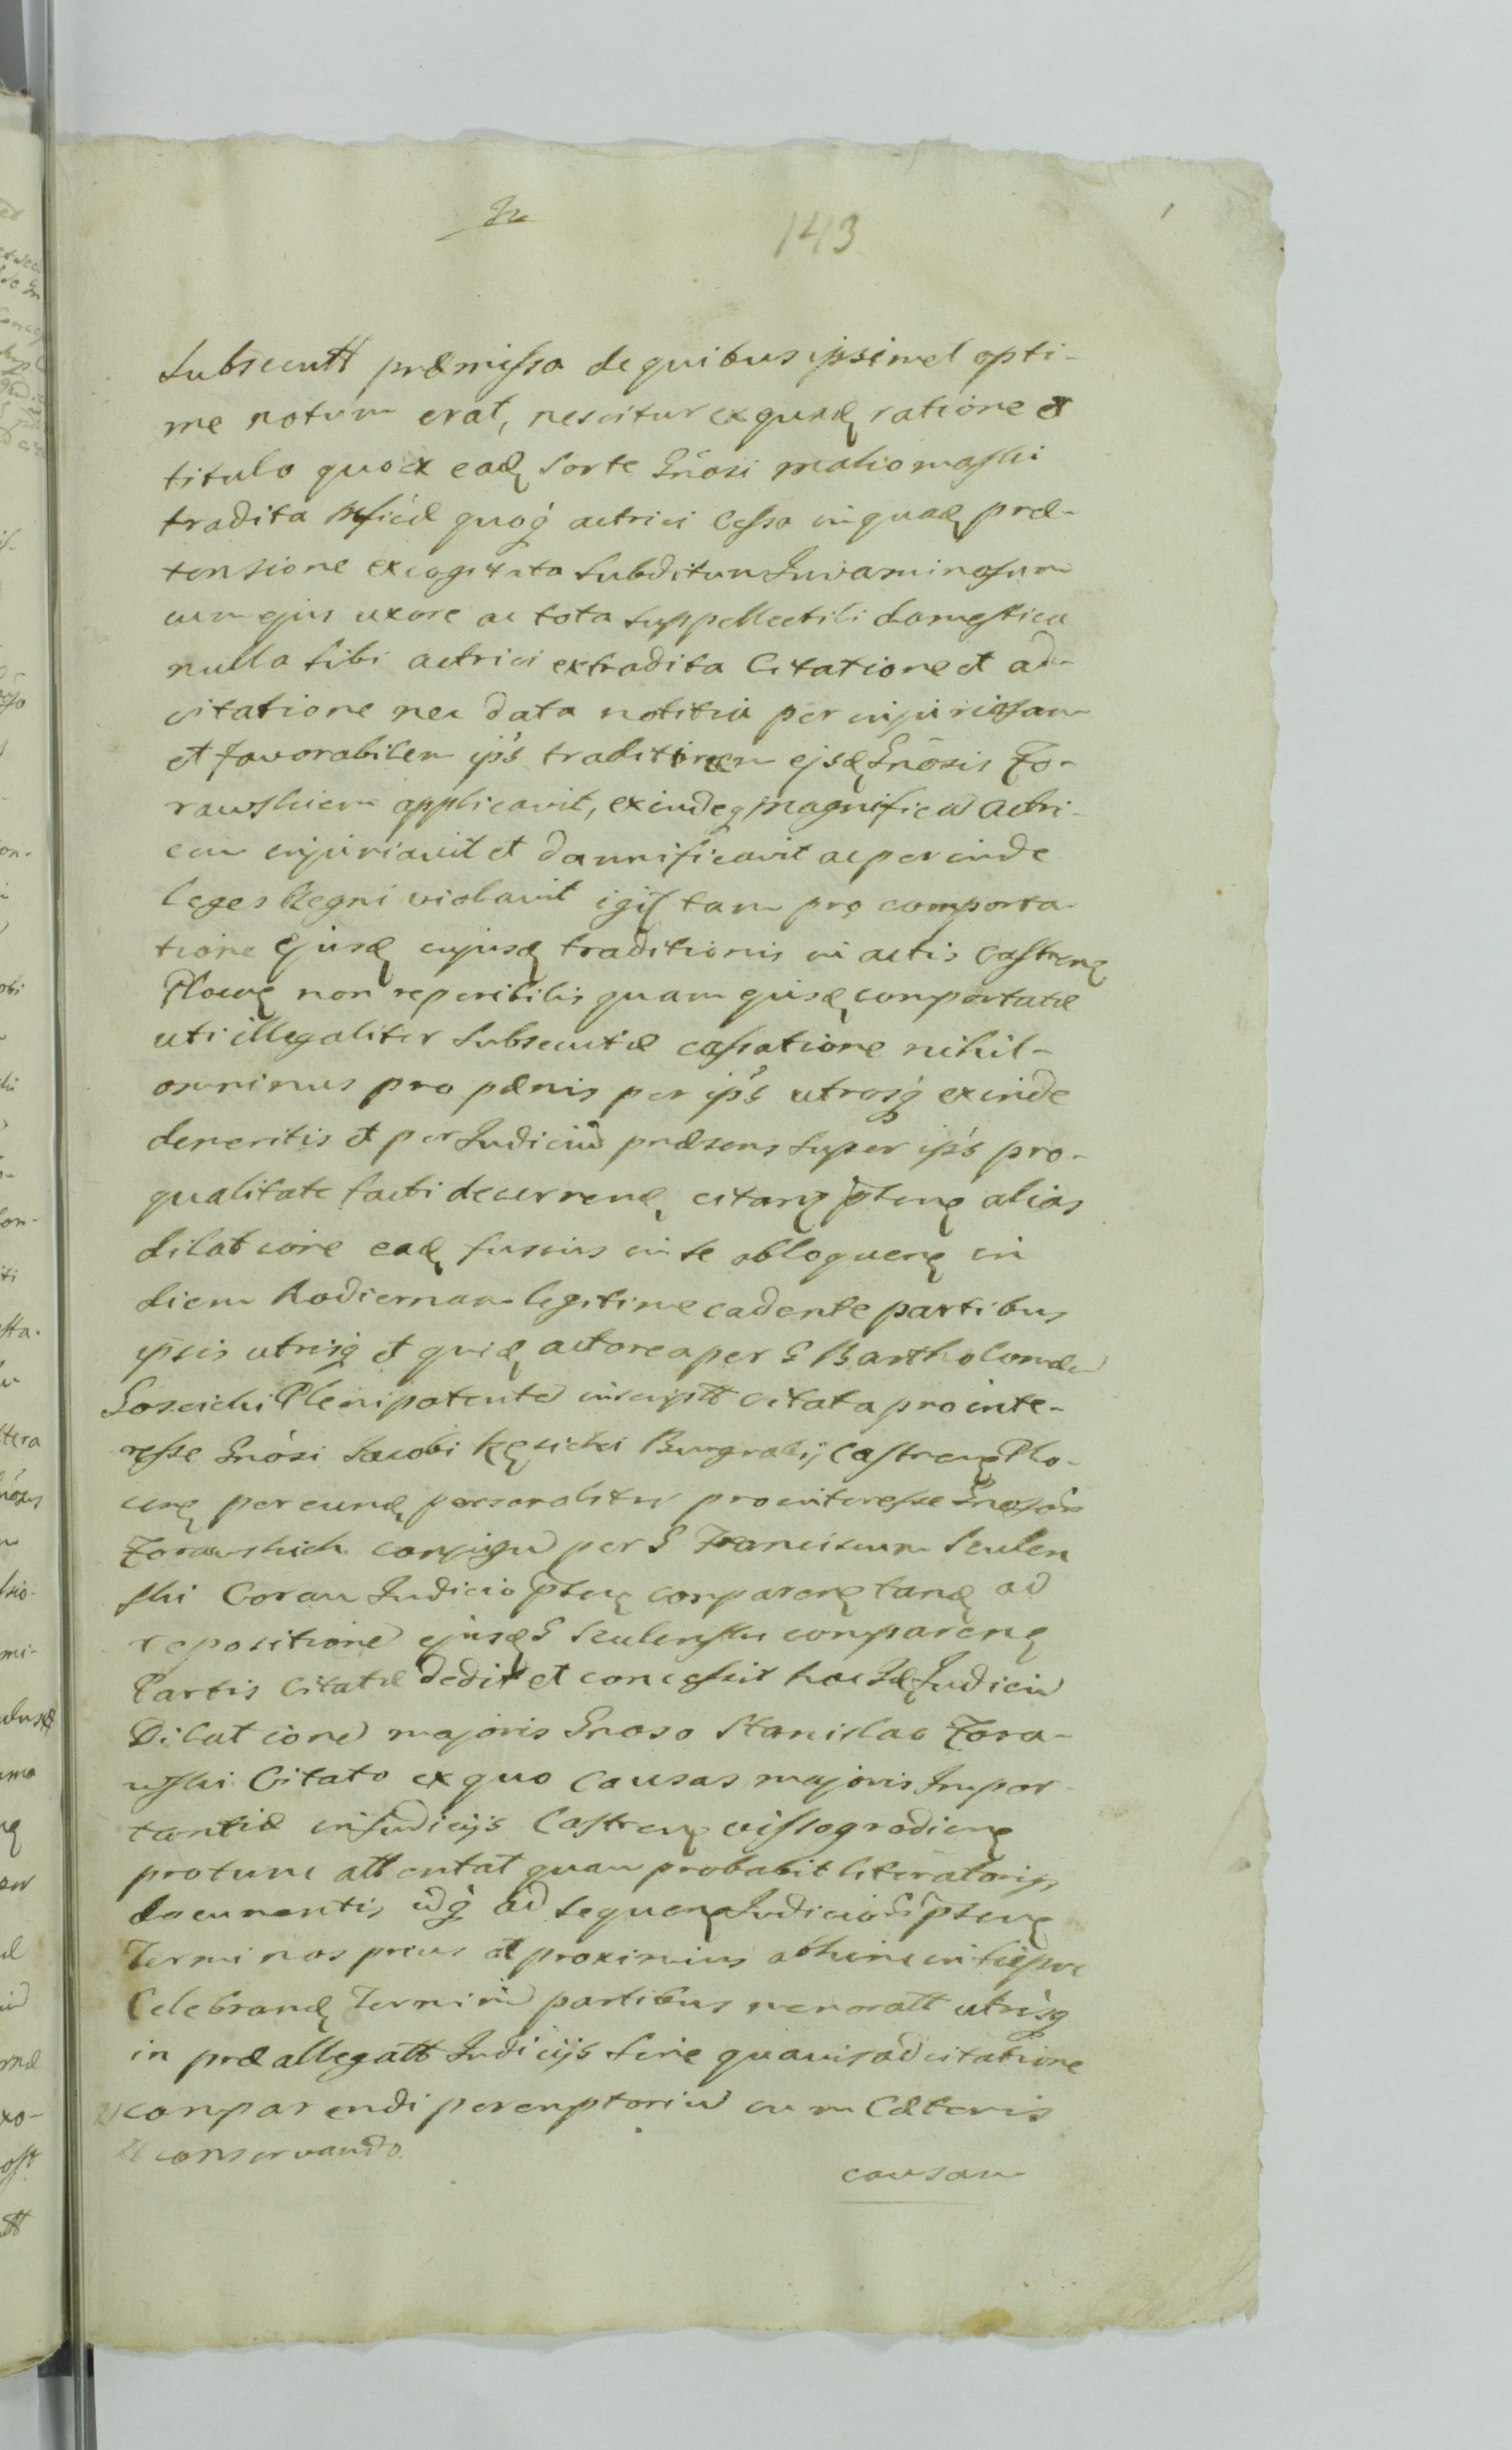 In
143
Subsecutt præmissa de quibus ipsimet opti-
me notum erat, nescitur ex quadę ratione et
titulo quo ex eadę sorte Gnosi Malionaski
tradita Mficæ quoq actrici cessa in quadę præ-
tensione excogitata subditum Juvaminosum
cum ejus uxore ac tota suppellectili domestica
nulla sibi actrici extradita Citatione et ad-
citatione nec data notitia per injuriosam
et favorabilem ips traditionem ejsdę Gnosis Zo-
rawskiem applicavit, exindeq magnifica Actri-
cem injuriavit et damnificavit ac perinde
leges Regni violavit igi tam pro comporta-
tione Ejusdę cujusdę traditionis in actis Castrenę
Plocenę non reperibilis quam ejusdę comportatæ
uti illegaliter subsecutæ cassatione nihil-
ominus pro pænis per ips utrosq exinde
demeritis et per Judiciu præsens super ips pro
qualitate facti decernendę citanę ptenę alias
dilatione eadę fusius in se obloquenę in
diem hodiernam legitime cadente partibus
ipsis utrisq et quidę actorea per G Bartholomæu
Goscicki Plenipotente inscriptt citata pro inte-
resse Gnosi Jacobi Kęsicki Burgrabij Castrenę Plo-
cenę per eundę personaliter pro interesse Gnosor
Zorawskich conjugu per G Franciscum Sculen
ski Coram Judicio ptenę comparenę tandę ad
repositione ejusdę G Sculenski comparenę
Partis Citatæ dedit et concessit hoc Idę Judiciu
Dilatione majoris Gnoso Stanislao Zora-
wski Citato ex quo Causas majoris Impor-
tantiæ in Judicijs Castrenę Vissogrodienę
protunc attentat quam probabit literatorijs
documentis idq ad sequenę Judicior ptenę
Terminos prius et proximius abhinc in
Celebrandę Terminu partibus memoratt utrisq
in præallegatt Judicijs sine quavis adcitatione
comparendi peremptoriu cum Cæteris
conservando
causam